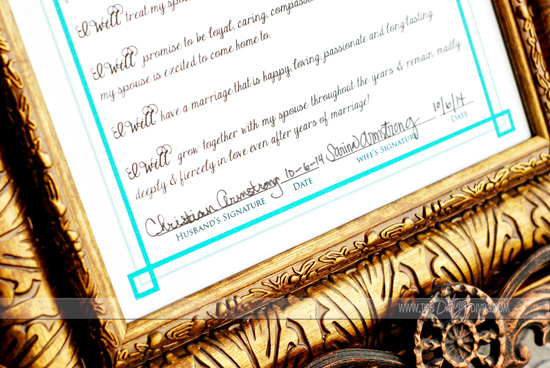 I Will treat my spo
I Will promise to be loyal, caring, compass
my spouse is excited to come home to.
I Will have a marriage that is happy, loving, passionate and long lasting.
I Will grow together with my spouse throughout the years & remain madly,
deeply & fiercely in love even after years of marriage!
Christian Armstrong 10-6-14 Janina Armstrong 10/6/14
Husband's Signature Date Wife's Signature Date
www.TheDatingDivas.com